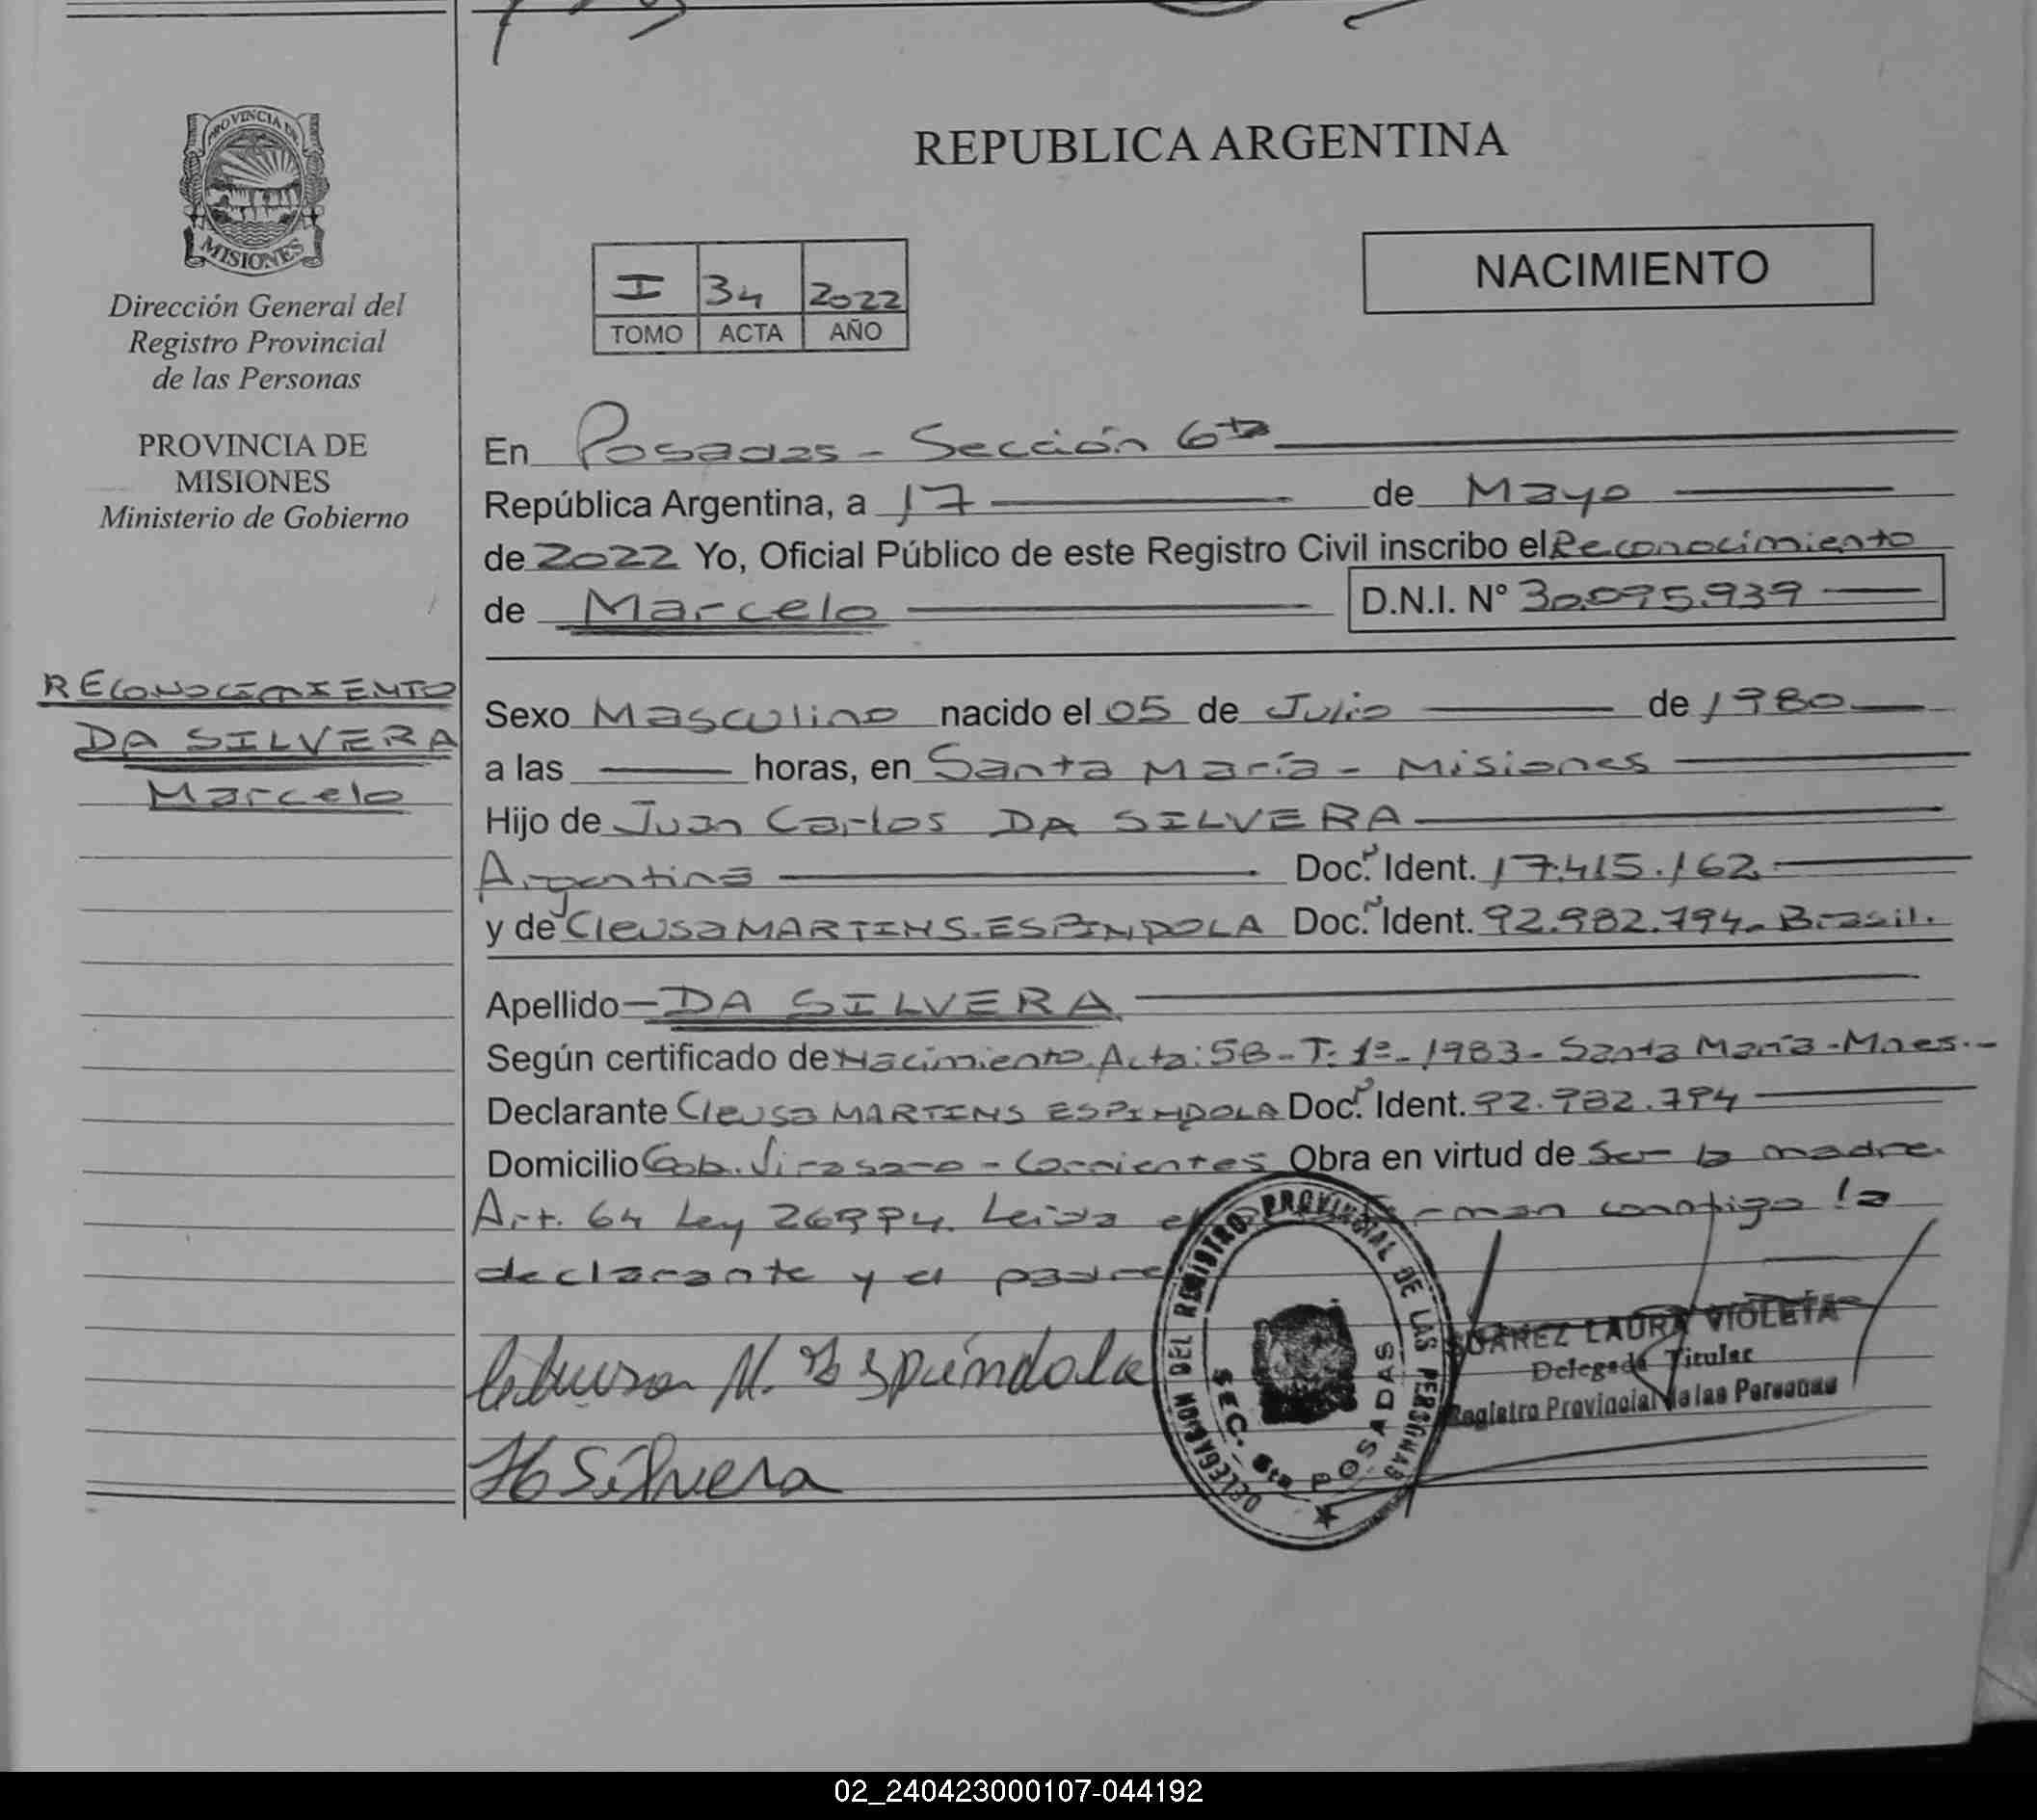 PROVINCIA DE
MISIONES
Dirección General del
Registro Provincial
de las Personas
PROVINCIA DE
MISIONES
Ministerio de Gobierno
RECONOCIMIENTO
DA SILVERA
Marcelo
REPUBLICA ARGENTINA
I 34 2022
TOMO ACTA AÑO
NACIMIENTO
En Posadas - Sección 6ta
República Argentina, a 17 de Mayo
de 2022 Yo, Oficial Público de este Registro Civil inscribo el Reconocimiento
de Marcelo D.N.I. N° 30.095.939
Sexo Masculino nacido el 05 de Julio de 1980
a las horas, en Santa María - Misiones
Hijo de Juan Carlos DA SILVERA
Argentina Doc. Ident. 17.415.162
y de Cleusa MARTINS ESPINDOLA Doc. Ident. 92.982.794. Brasil.
Apellido DA SILVERA
Según certificado de Nacimiento. Acta: 58 - T: 1º - 1983 - Santa María - Mnes.-
Declarante Cleusa MARTINS ESPINDOLA Doc. Ident. 92.982.794
Domicilio Gob. Virasoro - Corrientes Obra en virtud de Ser la madre.
Art. 64 Ley 26994. Leida el conmigo la
declarante y el padre
M. Espíndola
Silvera
DELEGACION DEL REGISTRO PROVINCIAL DE LAS PERSONAS
SEC. 6ta POSADAS
SUAREZ LAURA VIOLETA
Delegada Titular
Registro Provincial de las Personas
02_240423000107-044192